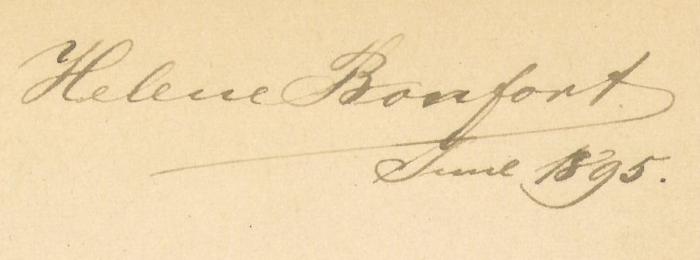 Helene Bonfort.
June 1895.